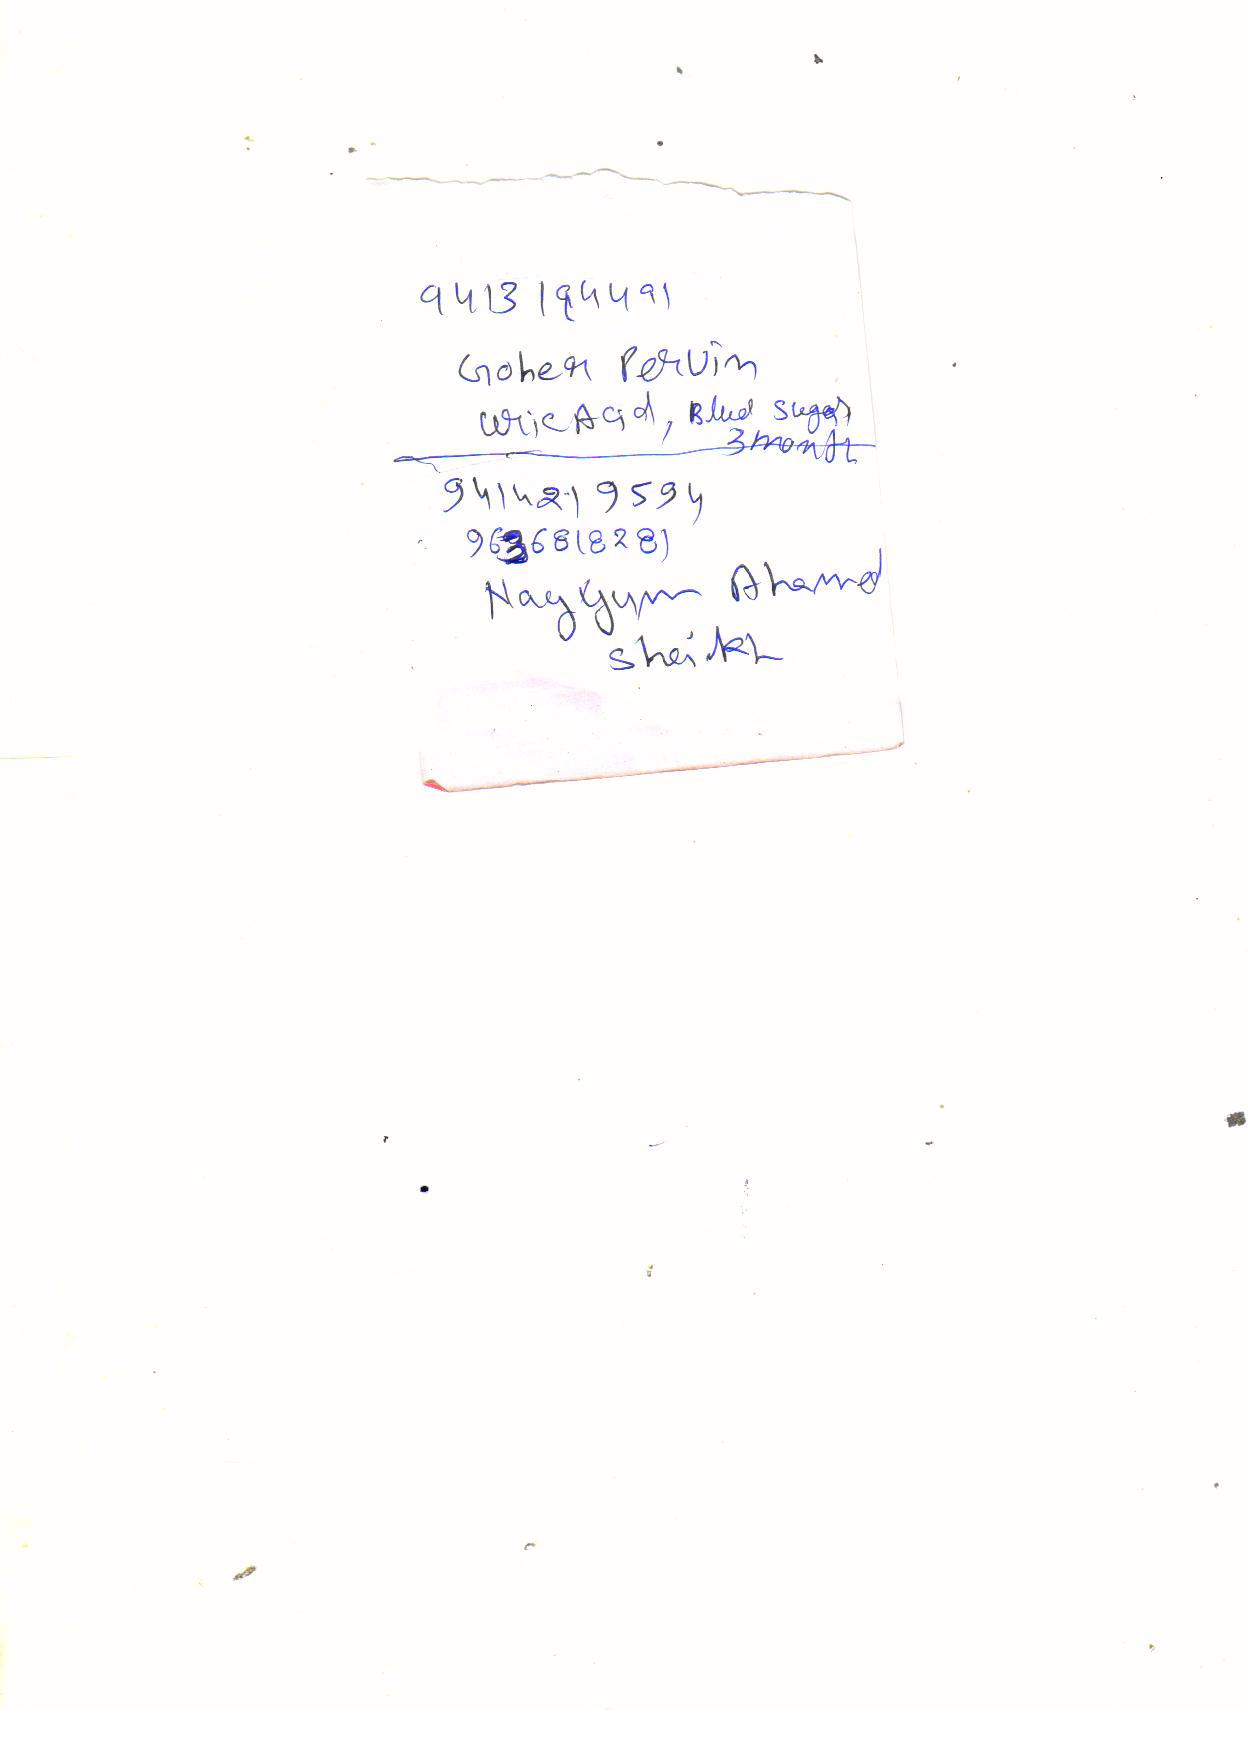 9413194491
Goher Pervin
Uric Acid, Blud Sugar
3 month
9414219594
9636818281
Nayyum Ahamed
Sheikh